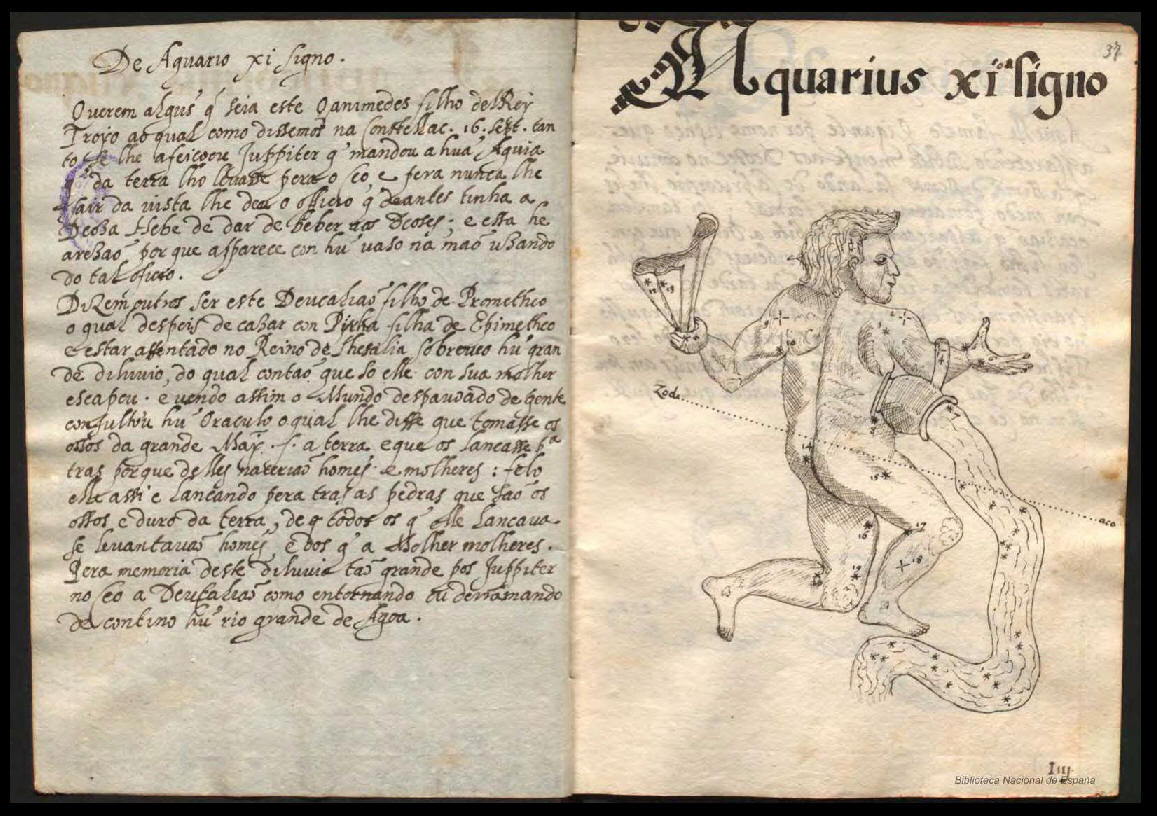 De Aquario xi signo.
Querem algūs q̃ seia este Ganimedes filho delRey
Troyo ao qual como dissemos na constellac. 16. sept. tan
to se lhe afeiçoou Juppiter q̃ mandou a hũa Aguia
da terra lho levasse pera o ceo, e pera nunca lhe
sair da vista lhe deu o officio q̃ de antes tinha a
Deosa Hebe de dar de beber aos Deoses; e esta he
a rezaõ porque apparece con hũ vaso na maõ usando
do tal oficio.
Dizem outros ser este Deucaliaõ filho de Prometheo
o qual despois de casar con Pirrha filha de Epimetheo
e estar assentado no Reino de Thesalia sobreveo hũ gran
de diluvio, do qual contaõ que so elle con sua molher
escapou. e vendo assim o Mundo despovoado de gente
consultou hũ Oraculo o qual lhe disse que tomasse os
ossos da grande May .s. a terra e que os lancasse
tras porque delles naceriaõ homēs e molheres: felo
elle assi e lancando pera tras as pedras que saõ os
ossos, e duro da terra, de q̃ todos os q̃ elle lancava
se levantavaõ homēs, e dos q̃ a Molher molheres.
Pera memoria deste diluvio taõ grande pos Juppiter
no ceo a Deucaliaõ como entornando ou derramando
de contino hũ rio grande de Agoa.
37
Aquarius xi signo
Zodi
aco
17
Biblioteca Nacional de España